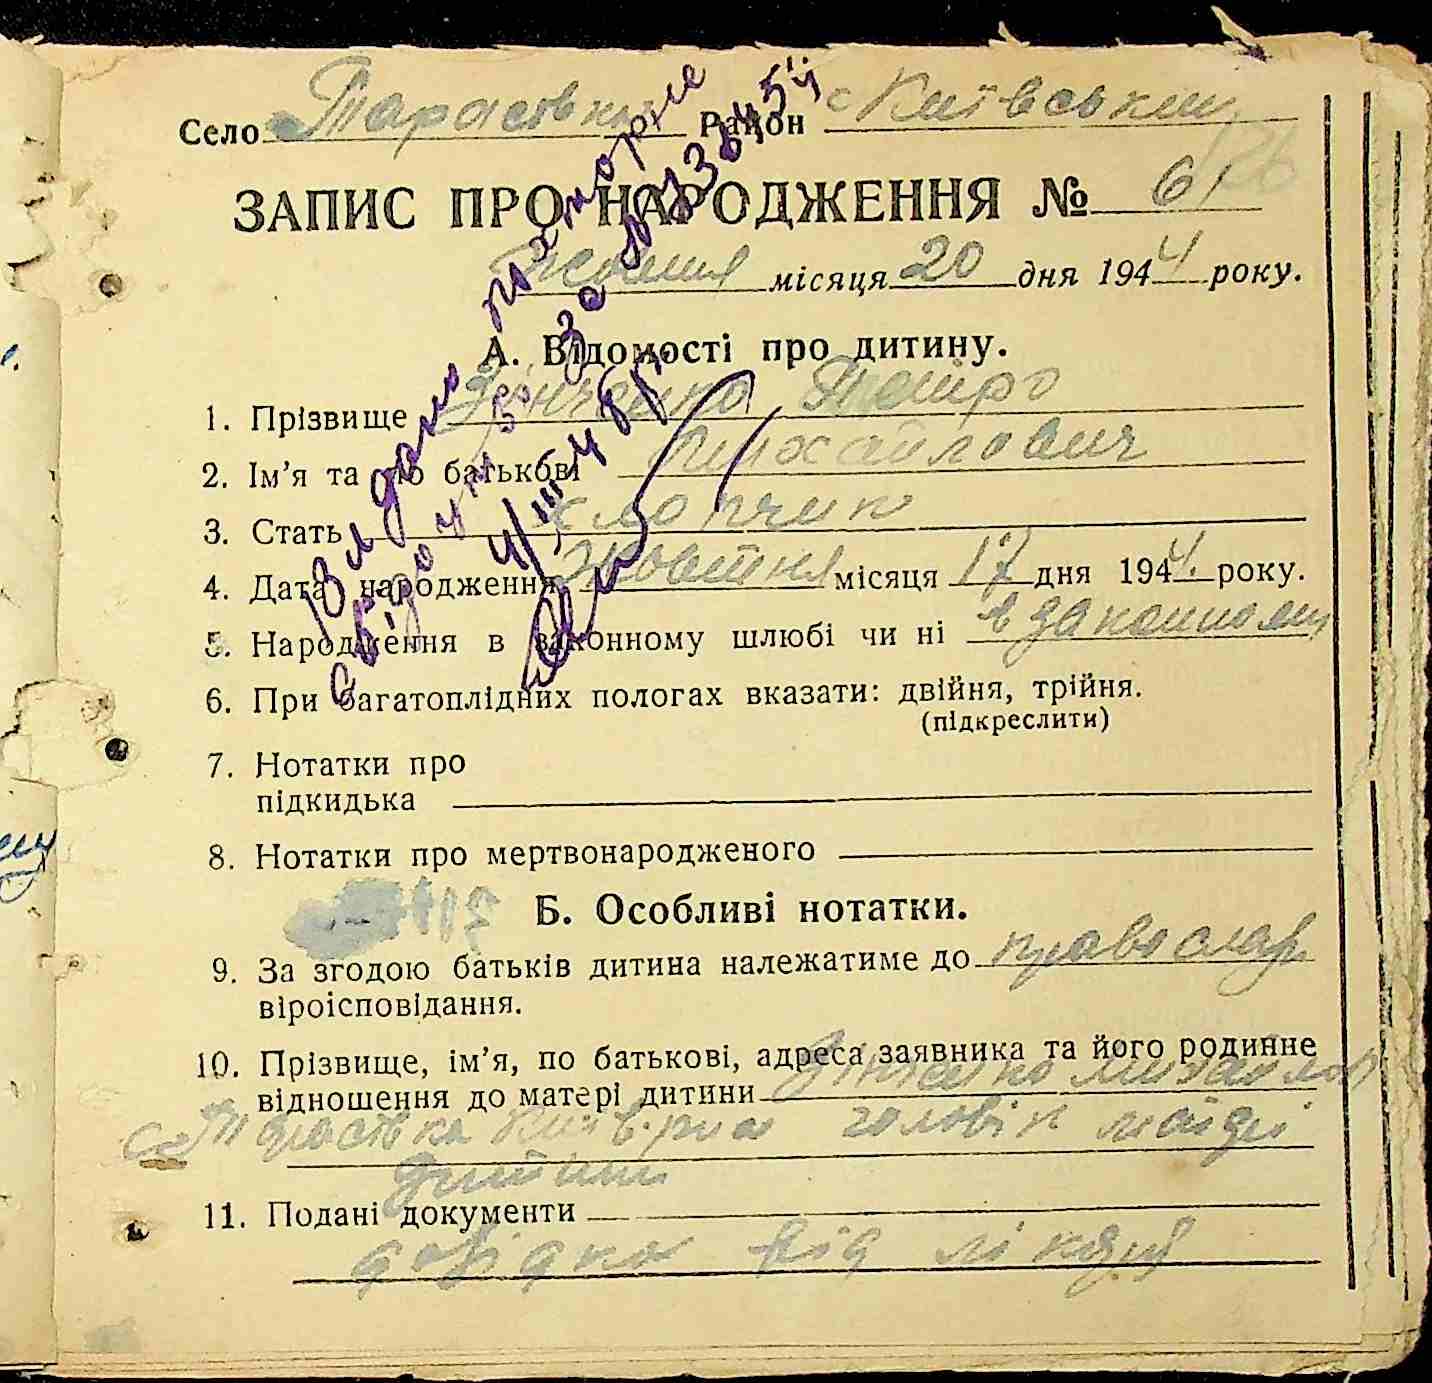 Село Тарасівка Район Київський
ЗАПИС ПРО НАРОДЖЕННЯ № 61
Жовтня місяця 20 дня 1944 року.
А. Відомості про дитину.
1. Прізвище Зінченко Петро
2. Ім’я та по батькові Михайлович
3. Стать хлопчик
4. Дата народження Жовтня місяця 17 дня 1944 року.
5. Народження в законному шлюбі чи ні в законному
6. При багатоплідних пологах вказати: двійня, трійня.
(підкреслити)
7. Нотатки про
підкидька
8. Нотатки про мертвонародженого
Б. Особливі нотатки.
9. За згодою батьків дитина належатиме до православ
віроісповідання.
10. Прізвище, ім’я, по батькові, адреса заявника та його родинне
відношення до матері дитини Зінченко Михайло
с Тарасівка Київ. рна чоловік матері
дитини
11. Подані документи
довідка від лікаря
Видано повторне
свідоцтво за №
4/III 48 г.